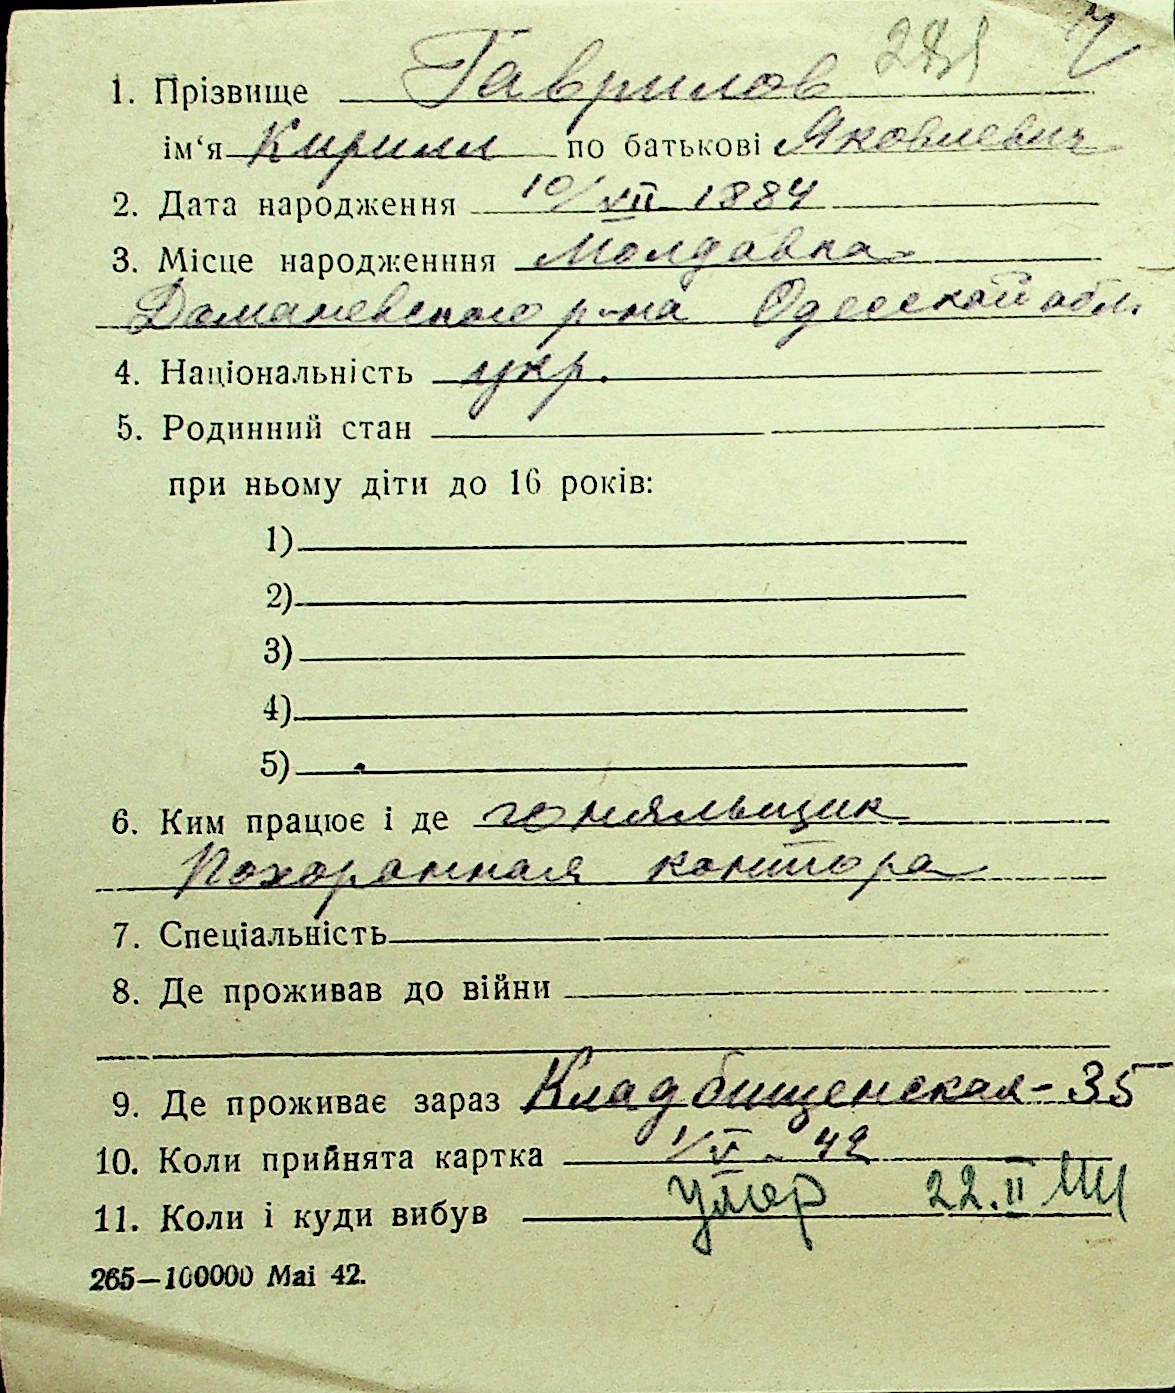 1. Прізвище Гаврилов
ім‘я Кирилл по батькові Яковлевич
2. Дата народження 10/VII 1884
3. Місце народженння Молдавка
Доманевского р-на Одесской обл.
4. Національність укр.
5. Родинний стан
при ньому діти до 16 років:
1)
2)
3)
4)
5)
6. Ким працює і де гоняльщик
Похоронная контора
7. Спеціальність
8. Де проживав до війни
9. Де проживає зараз Кладбищенская-35
10. Коли прийнята картка 1/V - 42
11. Коли і куди вибув умер 22.II
265—100000 Mai 42.